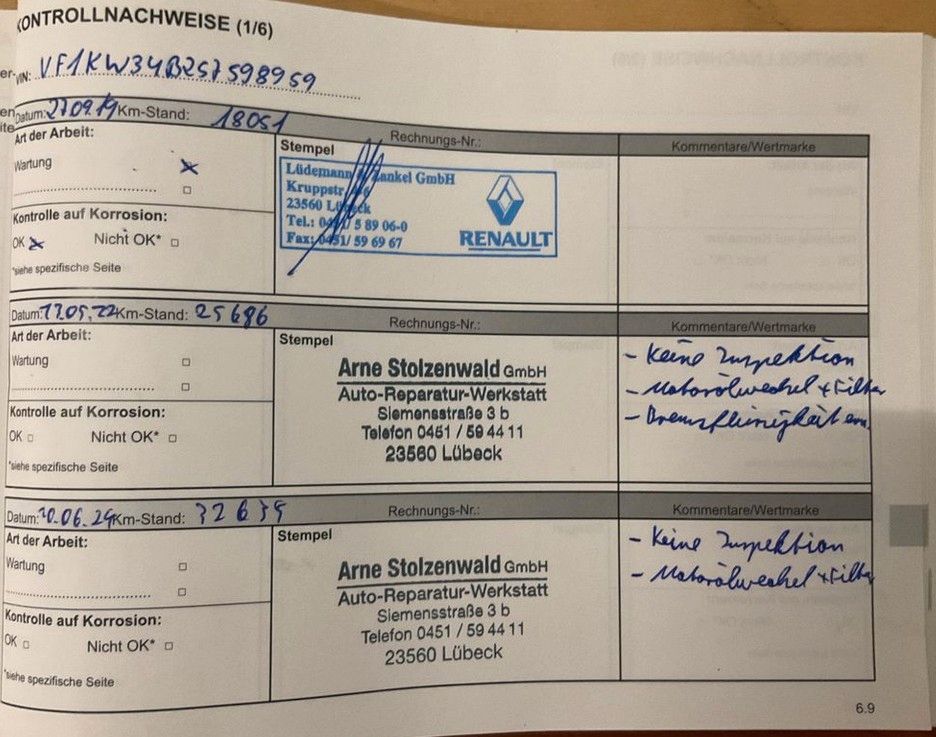 KONTROLLNACHWEISE (1/6)
VIN: VF1KW34B257598959
Datum: 27.09.19 Km-Stand: 18051
Art der Arbeit:
Wartung
Kontrolle auf Korrosion:
OK Nicht OK*
*siehe spezifische Seite
Rechnungs-Nr.:
Stempel
Lüdemann Zankel GmbH
Kruppstr.
23560 Lübeck
Tel.: 0451/ 5 89 06-0
Fax: 0451/ 59 69 67
RENAULT
Kommentare/Wertmarke
Datum: 17.05.22 Km-Stand: 25686
Art der Arbeit:
Wartung
Kontrolle auf Korrosion:
OK Nicht OK*
*siehe spezifische Seite
Rechnungs-Nr.:
Stempel
Arne Stolzenwald GmbH
Auto-Reparatur-Werkstatt
Siemensstraße 3 b
Telefon 0451 / 59 44 11
23560 Lübeck
Kommentare/Wertmarke
- Keine Inspektion
- Motorölwechsel + Filter
- Bremsflüssigkeit ern.
Datum: 20.06.24 Km-Stand: 32639
Art der Arbeit:
Wartung
Kontrolle auf Korrosion:
OK Nicht OK*
*siehe spezifische Seite
Rechnungs-Nr.:
Stempel
Arne Stolzenwald GmbH
Auto-Reparatur-Werkstatt
Siemensstraße 3 b
Telefon 0451 / 59 44 11
23560 Lübeck
Kommentare/Wertmarke
- Keine Inspektion
- Motorölwechsel + Filter
6.9